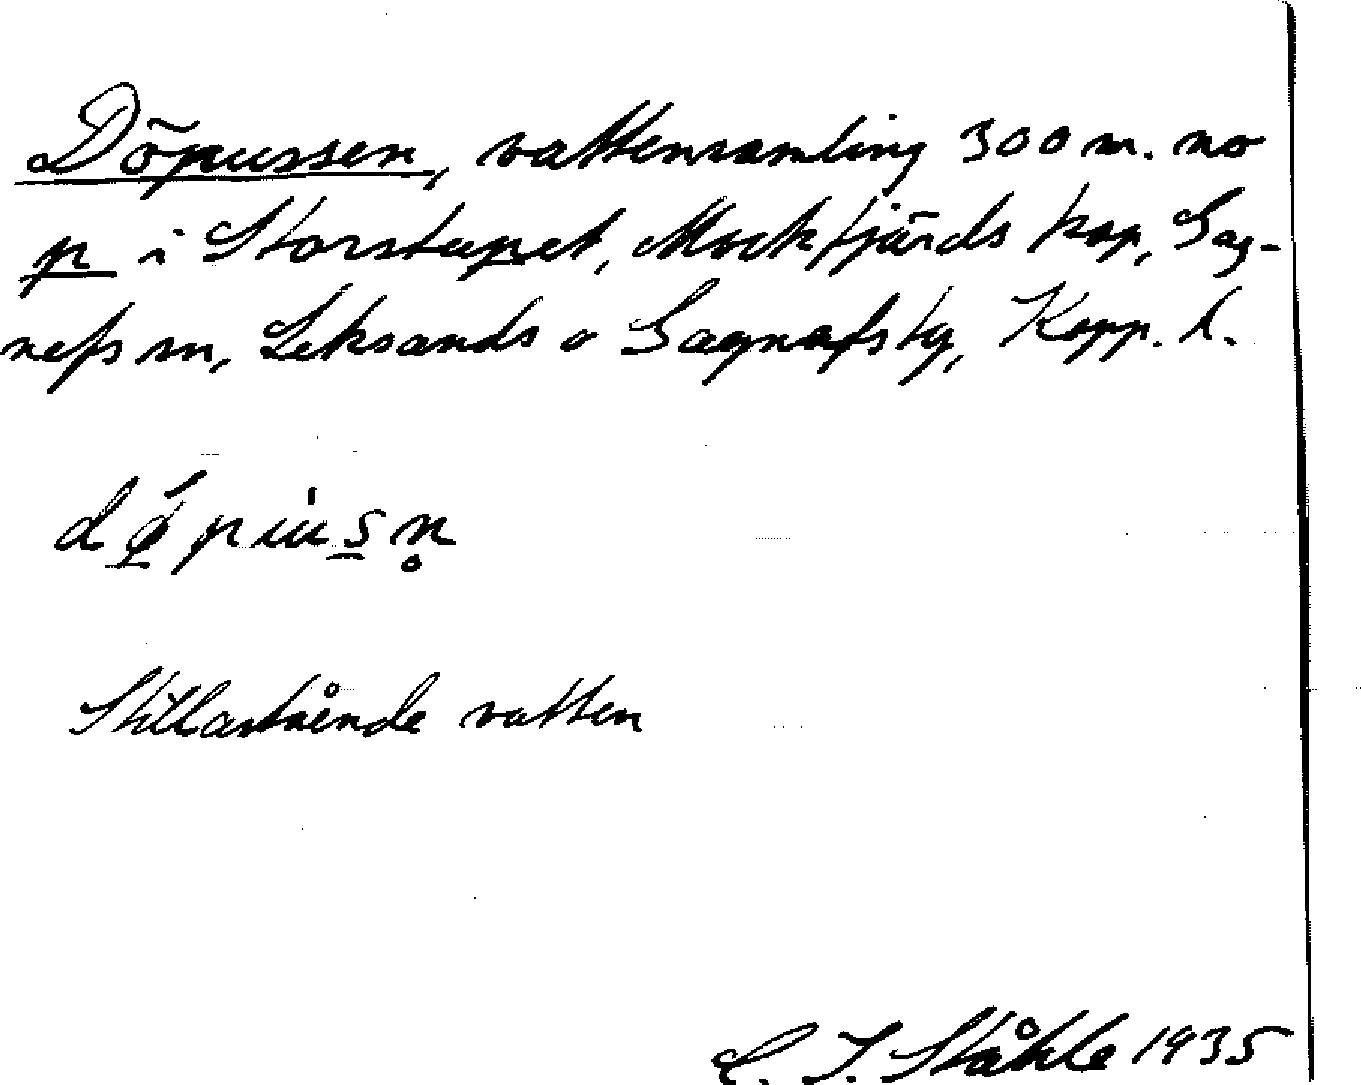 Döpussen, vattensamling 300 m. no
p i Storstupet, Mockfjärds kap, Gag-
nefs sn, Leksands o Gagnefs tg, Kopp. l.
Stillastående vatten
C. I. Ståhle 1935